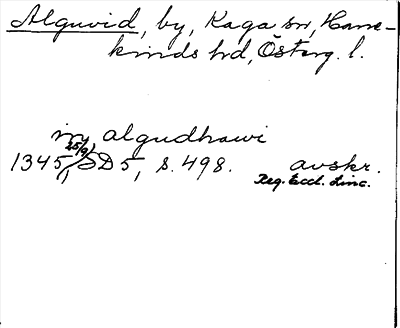 Alguvid, by, Kaga sn, Hane-
kinds hd, Österg. l.
in algudhawi
25/9
1345, SD 5, s. 498. avskr.
Reg. Eccl. Linc.